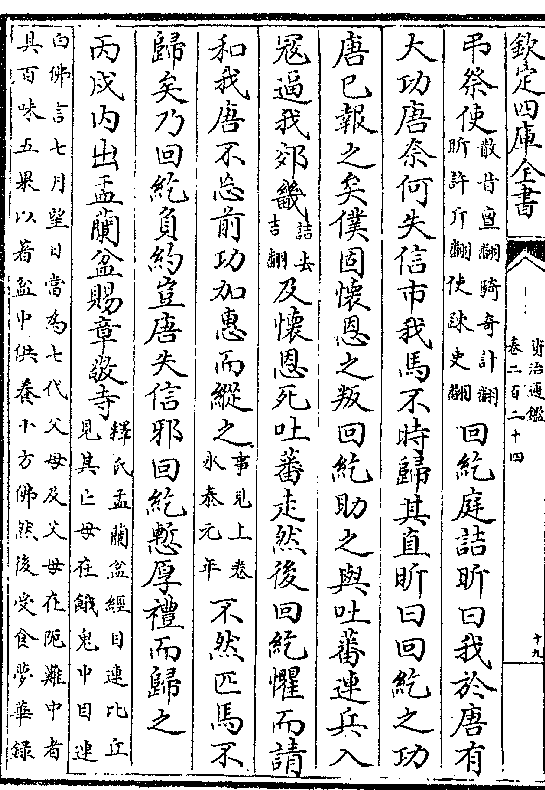 欽定四庫全書
資治通鑑
卷二百二十四
十九
弔祭使散昔亶翻騎奇計翻昕許斤翻使疎吏翻回紇庭詰昕曰我於唐有
大功唐奈何失信市我馬不時歸其直昕曰回紇之功
唐已報之矣僕固懷恩之叛回紇助之與吐蕃連兵入
寇逼我郊畿詰去吉翻及懷恩死吐蕃走然後回紇懼而請
和我唐不忘前功加惠而縱之事見上卷永泰元年不然匹馬不
歸矣乃回紇負約豈唐失信邪回紇慙厚禮而歸之
丙戌内出盂蘭盆賜章敬寺釋氏盂蘭盆經目連比丘見其亡母在餓鬼中目連
白佛言七月望日當為七代父母及父母在阨難中者具百味五果以着盆中供養十方佛然後受食夢華錄